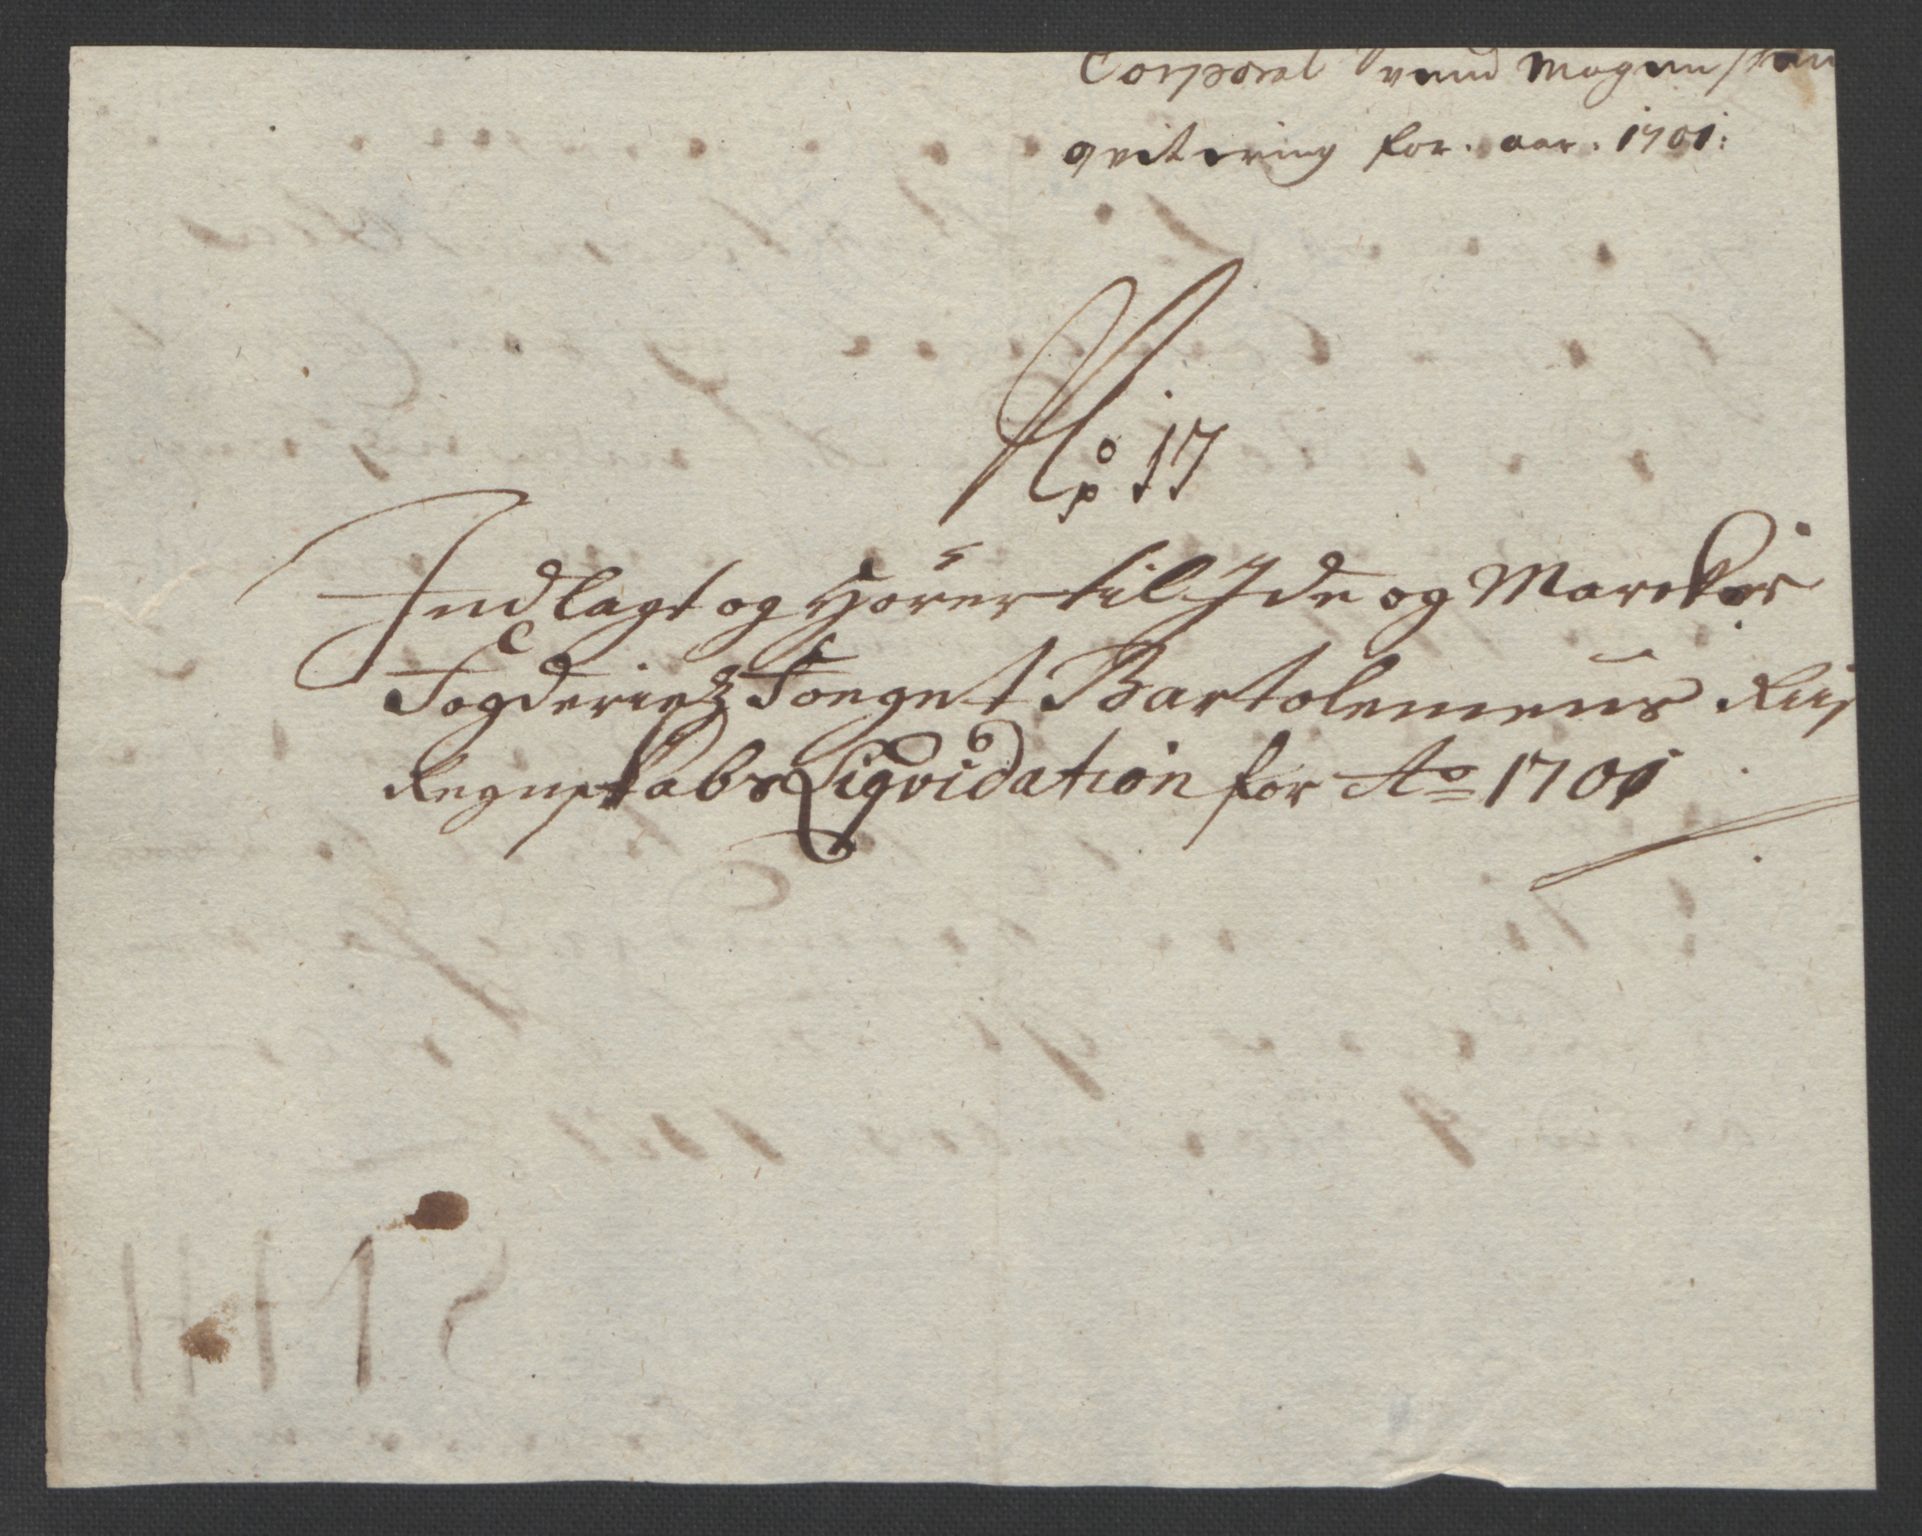 Corporal Svend Mogensøn
qvitering for. aar. 1701:
No 17
Indlagt og Hörer til Ide og Marcker
Fogderietz Fogget Bartolemeus Riis
Regnskabs Liqvidation for Ao 1701